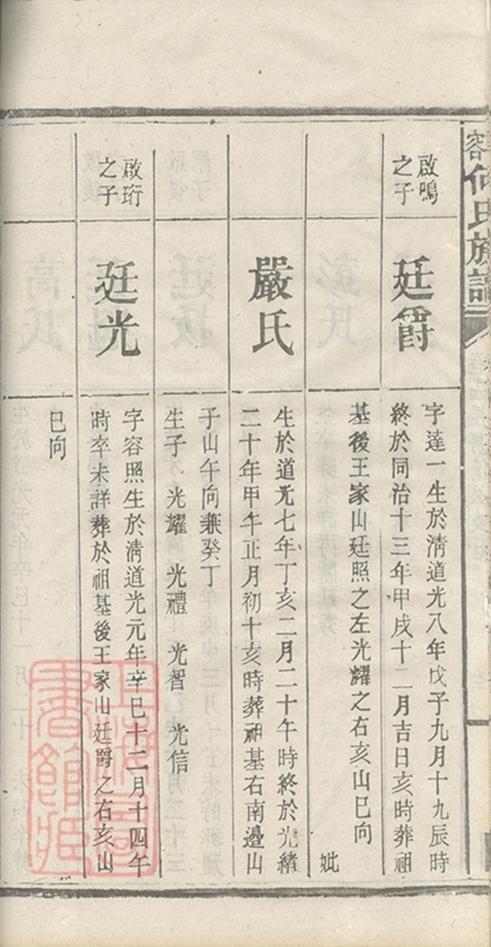 何氏族譜
啟鳴
之子
廷爵
字達一生於清道光八年戊子九月十九辰時
終於同治十三年甲戌十二月吉日亥時葬祖
基後王家山廷照之左光耀之右亥山巳向
妣
嚴氏
生於道光七年丁亥二月二十午時終於光緒
二十年甲午正月初十亥時葬祖基右南邊山
子山午向兼癸丁
生子 光耀 光禮 光智 光信
啟珩
之子
廷光
字容照生於清道光元年辛巳十二月十四午
時卒未詳葬於祖基後王家山廷爵之右亥山
巳向